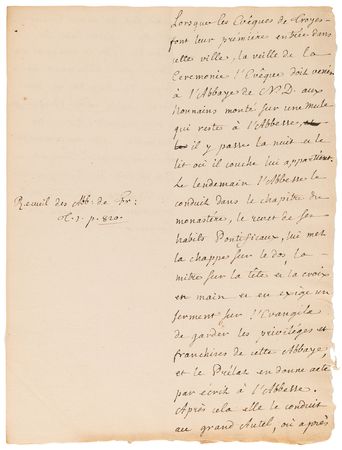 Lorsque les Evêques de Troyes
font leur premiere entrée dans
cette ville, la veille de la
Ceremonie l'Evêque doit venir
à l'Abbaye de N.D. aux
Nonnains monté sur une mule
qui reste à l'Abbesse,
il y passe la nuit et le
lit où il couche lui appartient.
Le lendemain l'Abbesse le
conduit dans le chapitre du
monastére, le revet de ses
habits Pontificaux, lui met
la chappe sur le dos, la
mitre sur la tête et la croix
en main et en exige un
serment sur l'Evangile
de garder les priviléges et
franchises de cette Abbaye,
et le Prélat en donne acte
par écrit à l'Abbesse.
Après cela elle le conduit
au grand Autel, où après
Recueil des Abb. de Fr:
p. 820.